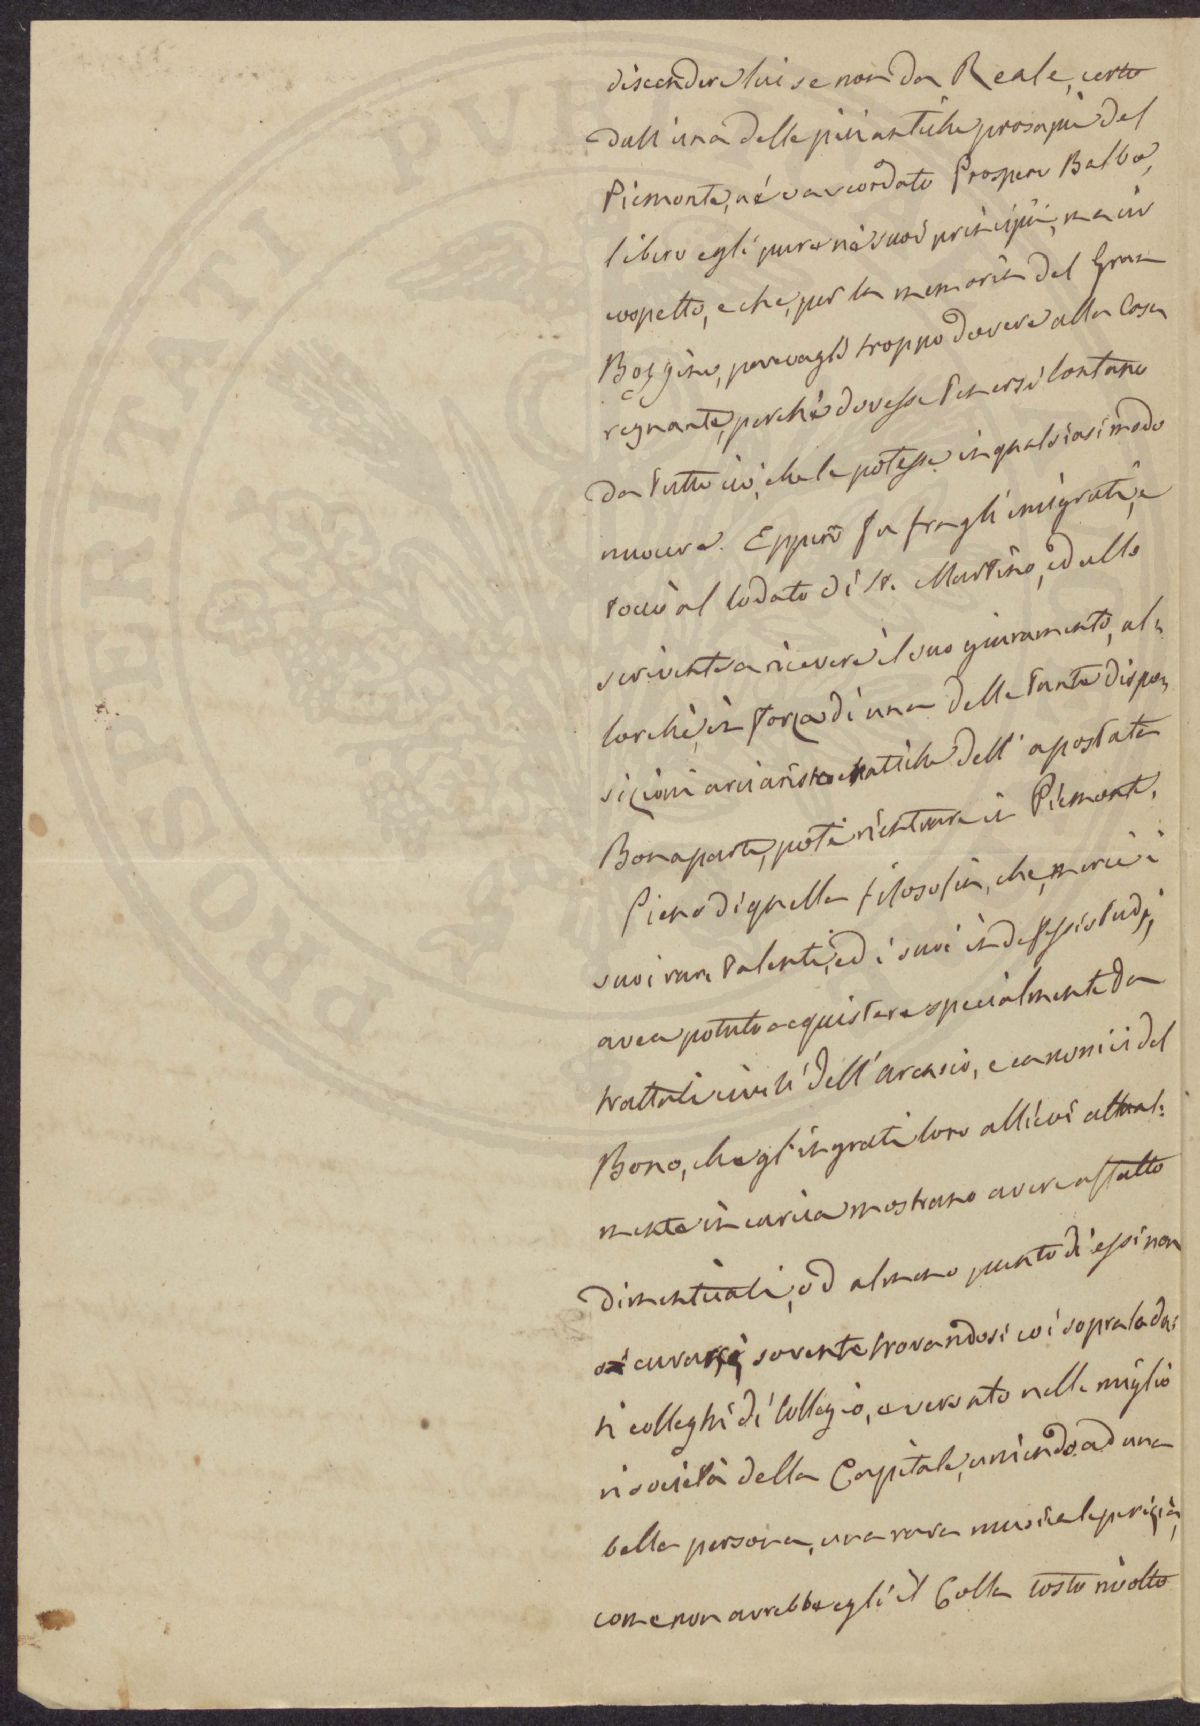 discendere lui se non da Reale, certo
dall'una delle più antiche prosapie del
Piemonte, né va scordato Prospero Balbo,
libero egli pure ne' suoi principii, ma cir
cospetto, e che, per la memoria del Gran
Bogino, parevagli troppo dovere alla Casa
regnante, perché dovesse tenersi lontano
da tutto ciò, che le potesse in qualsiasi modo
nuocere. Eppure fu fra gli emigrati, e
toccò al lodato di St. Martino, ed allo
scrivente a ricevere il suo giuramento, al=
lorché, in forza di una delle tante dispo=
sizioni arciaristocratiche dell'apostata
Bonaparte, poté rientrare in Piemonte.
Pieno di quella filosofia, che, mercé i
suoi rari talenti, ed i suoi indefessi studj,
avea potuto acquistare specialmente da
trattati civili dell'Arcasio, e canonici del
Bono, che gl'ingrati loro allievi attual=
mente in carica mostrano avere affatto
dimenticati, od almeno punto di essi non
curarsi, sovente trovandosi coi sopraloda=
ti colleghi di Collegio, e versato nelle miglio
ri società della Capitale, unendo ad una
bella persona, una rara musicale perizia,
come non avrebbe egli il Colla tosto rivolto
PROSPERITATI PVB